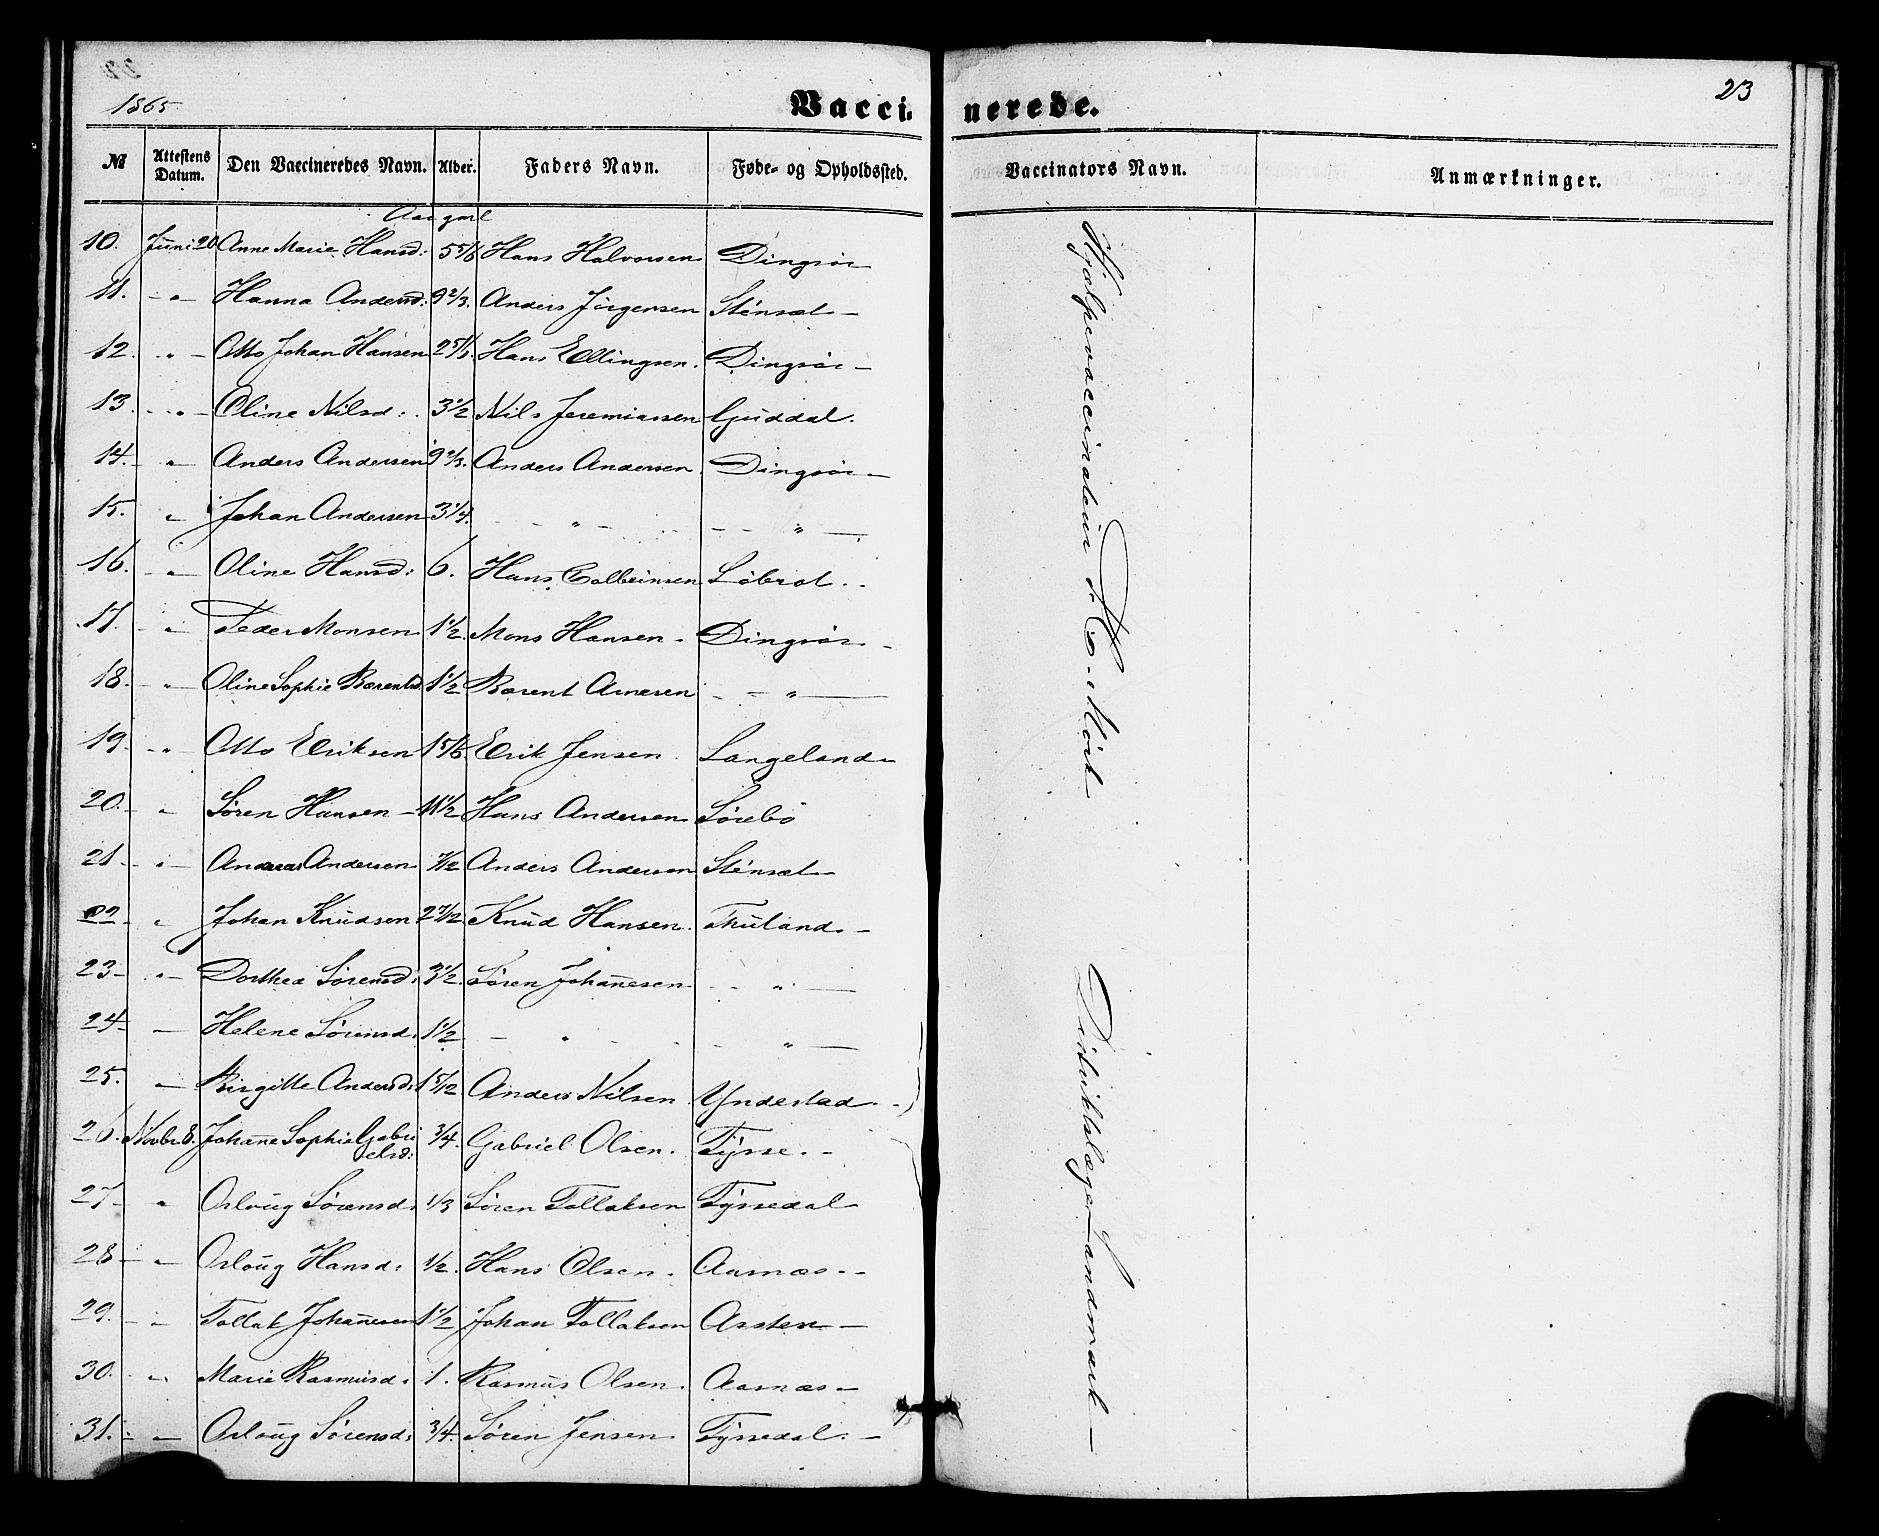 1865
23
Vaccinerede.
№ | Attestens Datum. | Den Vaccineredes Navn. | Alder. | Faders Navn. | Føde- og Opholdssted. | Vaccinators Navn. | Anmærkninger.
Aar gml
10. Juni 20 Anne Marie Hansd: 5 5/6 Hans Halvorsen Dingsör
11. - " - Hanna Andersd: 9 2/3. Anders Jörgensen Stensæt -
12. " - Otto Johan Hansen 2 5/6. Hans Ellingsen. Dingsör -
13. - " - Oline Nilsd: 3 1/2 Nils Jeremiassen Guddal.
14. - " Anders Andersen 9 2/3. Anders Andersen. Dingsör -
15. " Johan Andersen 3 1/4. - " - - - " -
16. - " Oline Hansd: 6. Hans Colbeinsen Löbrot. -
17. - " Peder Monsen 1 1/2. Mons Hansen - Dingsör -
18. - " Oline Sophie Barentsd. 1 1/2 Barent Arnesen - - " -
19. - " Otto Eriksen 1 5/6. Erik Jensen. Langeland -
20. - " Sören Hansen - 11 1/2 Hans Andersen Sörebö
21 - " - Andreas Andersen 7/12 Anders Andersen Stensæt -
22 - " Johan Knudsen 2 7/12 Knud Hansen. Thuland. -
23 - " - Dorthea Sörensd: 3 1/2. Sören Johanesen - - " -
24 - - Helene Sörensd. 1 1/2 - " - - " -
25. " - Birgitte Andersd: 1 5/12 Anders Nilsen Yndestad. -
26. Novbr 8. Johanne Sophie Gabri
elsd: 3/4. Gabriel Olsen. Tÿsse. -
27 - " Osloug Sörensd. 1/3 Sören Tollaksen Tÿssedal
28 - " - Osloug Hansd: 1/2. Hans Olsen. Aarnæs. -
29. - " Tollak Johannesen 1 1/2 Johan Tollaksen Assten -
30. - " Marie Rasmusd. 1. Rasmus Olsen. Aarnæs -
31. - " - Osloug Sörensd: 3/4. Sören Jensen. Tÿssedal. -
Hjælpevaccinateur
Distriktslæge Landmark -